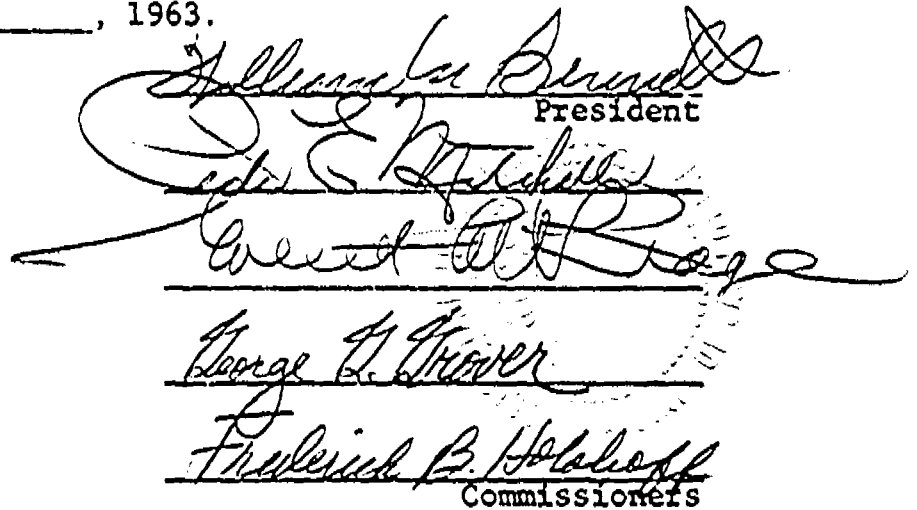 , 1963.
William M. Bennett
President
Peter E. Mitchell
George G. Grover
Frederick B. Holoboff
Commissioners